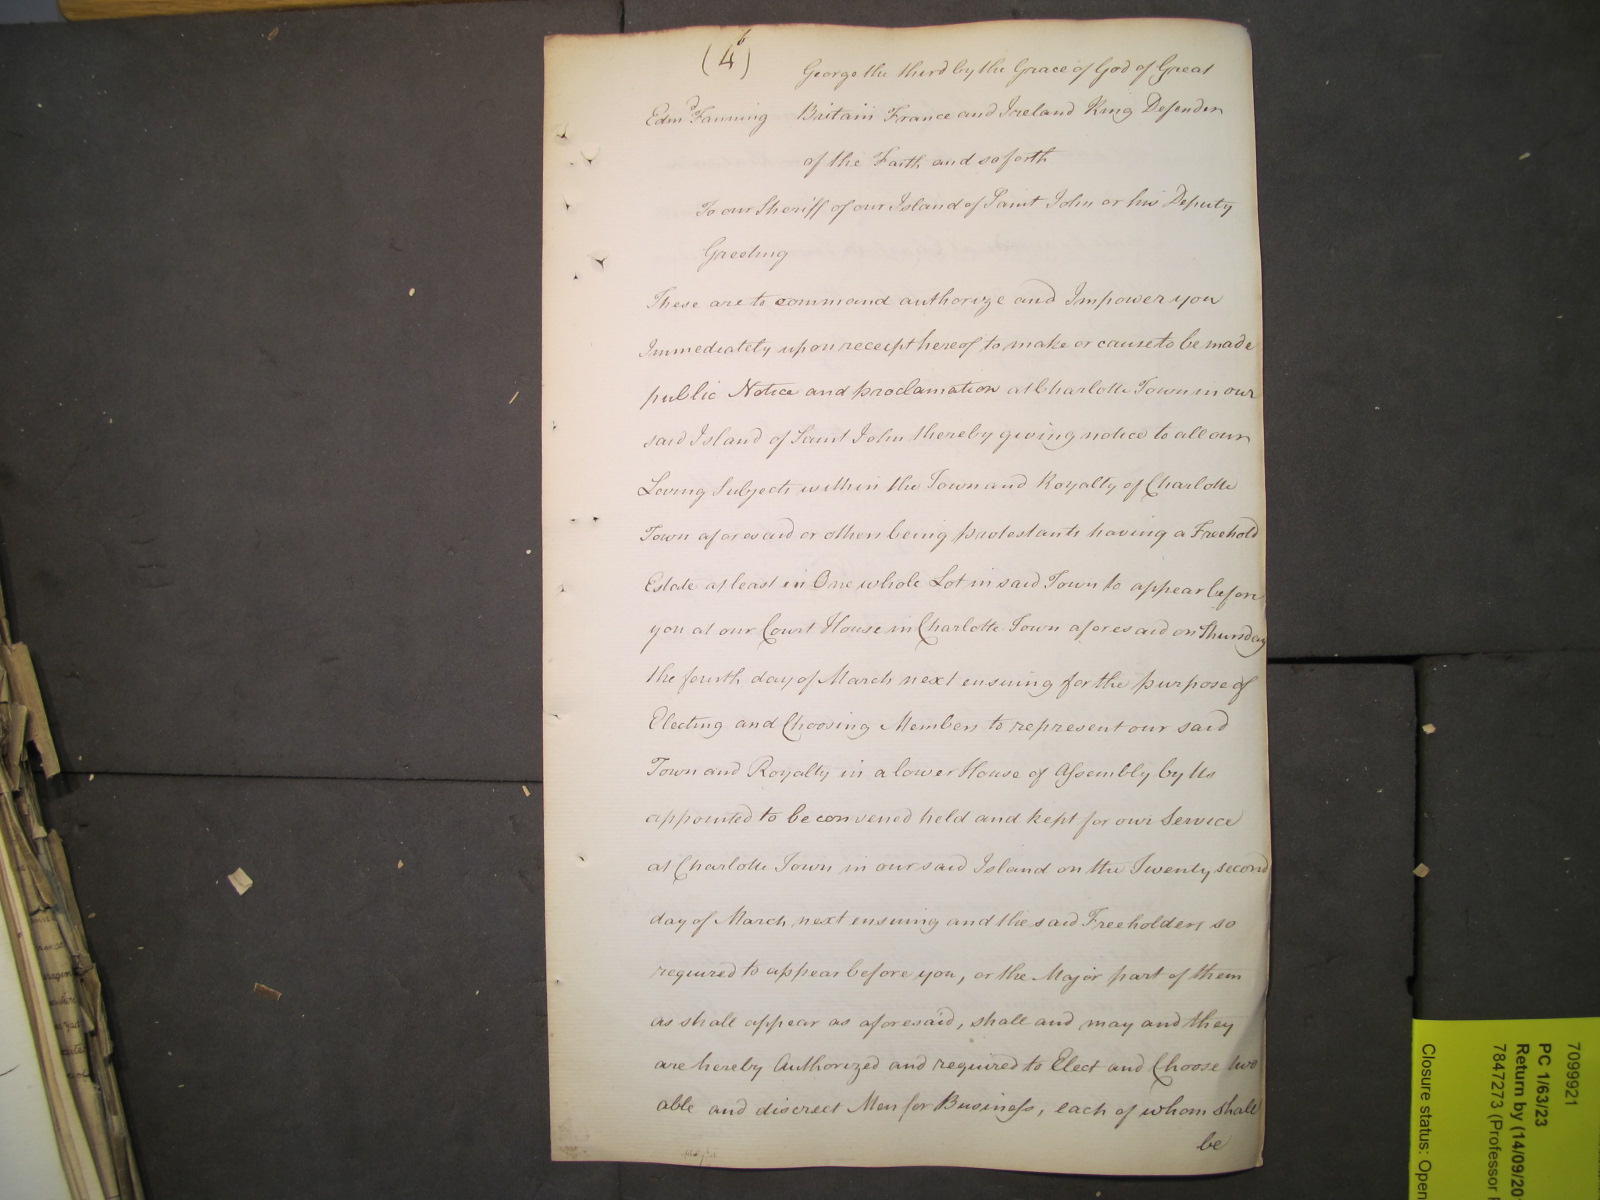 (4)
George the third by the Grace of God of Great
Edmd Fanning Britain France and Ireland King Defender
of the Faith and so forth
To our Sheriff of our Island of Saint John or his Deputy
Greeting
These are to command authorize and Impower you
Immediately upon receipt hereof to make or cause to be made
public Notice and proclamation at Charlotte Town in our
said Island of Saint John thereby giving notice to all our
Loving Subjects within the Town and Royalty of Charlotte
Town aforesaid or others being protestants having a Freehold
Estate at least in One whole Lot in said Town to appear before
you at our Court House in Charlotte Town aforesaid on Thursday
the fourth day of March next ensuing for the purpose of
Electing and Choosing Members to represent our said
Town and Royalty in a lower House of Assembly by Us
appointed to be convened held and kept for our Service
at Charlotte Town in our said Island on the Twenty second
day of March next ensuing and the said Freeholders so
required to appear before you, or the Major part of them
as shall appear as aforesaid, shall and may and they
are hereby Authorized and required to Elect and Choose two
able and discreet Men for Business, each of whom shall
be
7099921
PC 1/63/23
Return by (14/09/20
7847273 (Professor
Closure status: Open